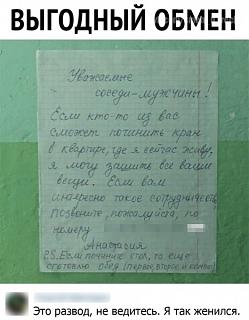 ВЫГОДНЫЙ ОБМЕН
Уважаемые
соседи-мужчины!
Если кто-то из вас
сможет починить кран
в квартире, где я сейчас живу,
я могу зашить все ваши
вещи. Если вам
интересно такое сотрудничество
Позвоните, пожалуйста, по
номеру
Анастасия
P.S. Если почините стол, то еще
приготовлю обед (первое, второе и компот)
Это развод, не ведитесь. Я так женился.